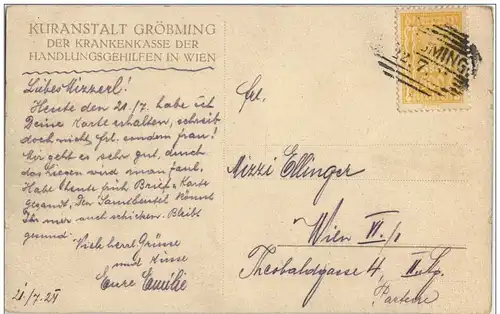 KURANSTALT GRÖBMING
DER KRANKENKASSE DER
HANDLUNGSGEHILFEN IN WIEN
Liebes Mizzerl!
Heute den 21./7. habe ich
Deine Karte erhalten, schreib
doch nicht, Frl. sondern Frau!
Mir geht es sehr gut, durch
das Liegen wird man faul.
Habe heute früh Brief u Karte
gesandt. Den könnt
Ihr mir auch schicken. Bleibt
gesund.
Viele herzl Grüsse
und Küsse
Eure Emilie
21./7. 24
Frl.
Mizzi Ellinger
Wien VI./1
Theobaldgasse 4
Parterre